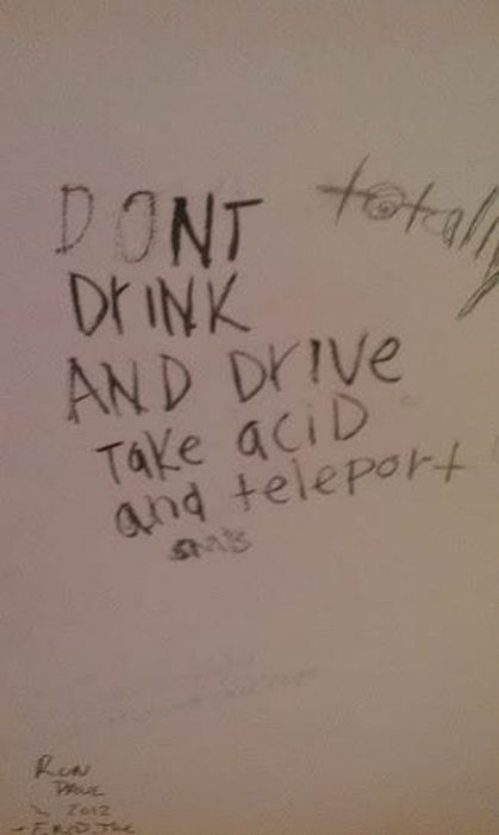 DONT
totally
DrINK
AND DrIVe
Take aciD
and teleport
RON
PAUL
2012